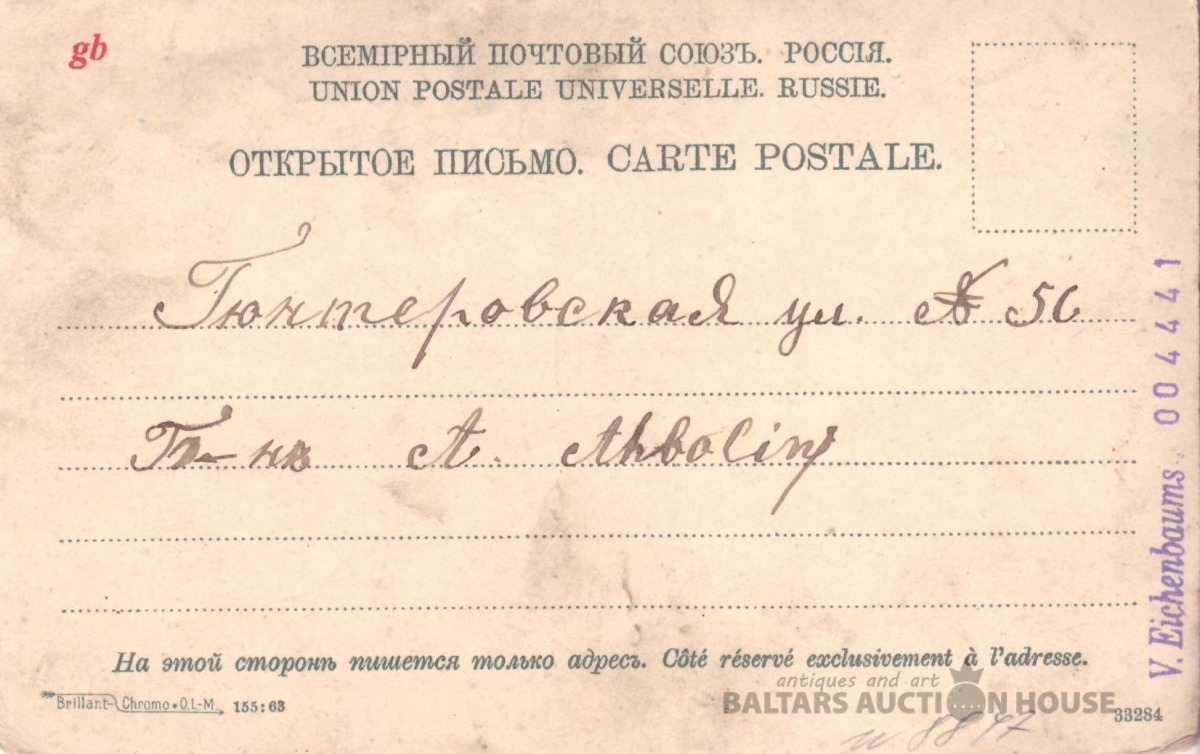 gb
ВСЕМІРНЫЙ ПОЧТОВЫЙ СОЮЗЪ. РОССІЯ.
UNION POSTALE UNIVERSELLE. RUSSIE.
ОТКРЫТОЕ ПИСЬМО. CARTE POSTALE.
Гюнтеровская ул. № 56
A. Ahboliņ
На этой сторонѣ пишется только адресъ. Côté réservé exclusivement à l'adresse.
Brillant-Chromo•O.L-M. 155:63
antiques and art
BALTARS AUCTION HOUSE
33284
8847
V. Eichenbaums. 004441